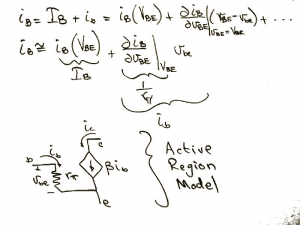 i_B = I_B + i_b = i_B(V_BE) + ∂i_B/∂v_BE |_{v_BE = V_BE} (v_BE - V_BE) + ...
i_B ≅ i_B(V_BE) + ∂i_B/∂v_BE |_{V_BE} v_be
I_B
1/r_π
i_b
i_c
c
b i_b
+ v_be - r_π
β i_b
e
Active
Region
Model